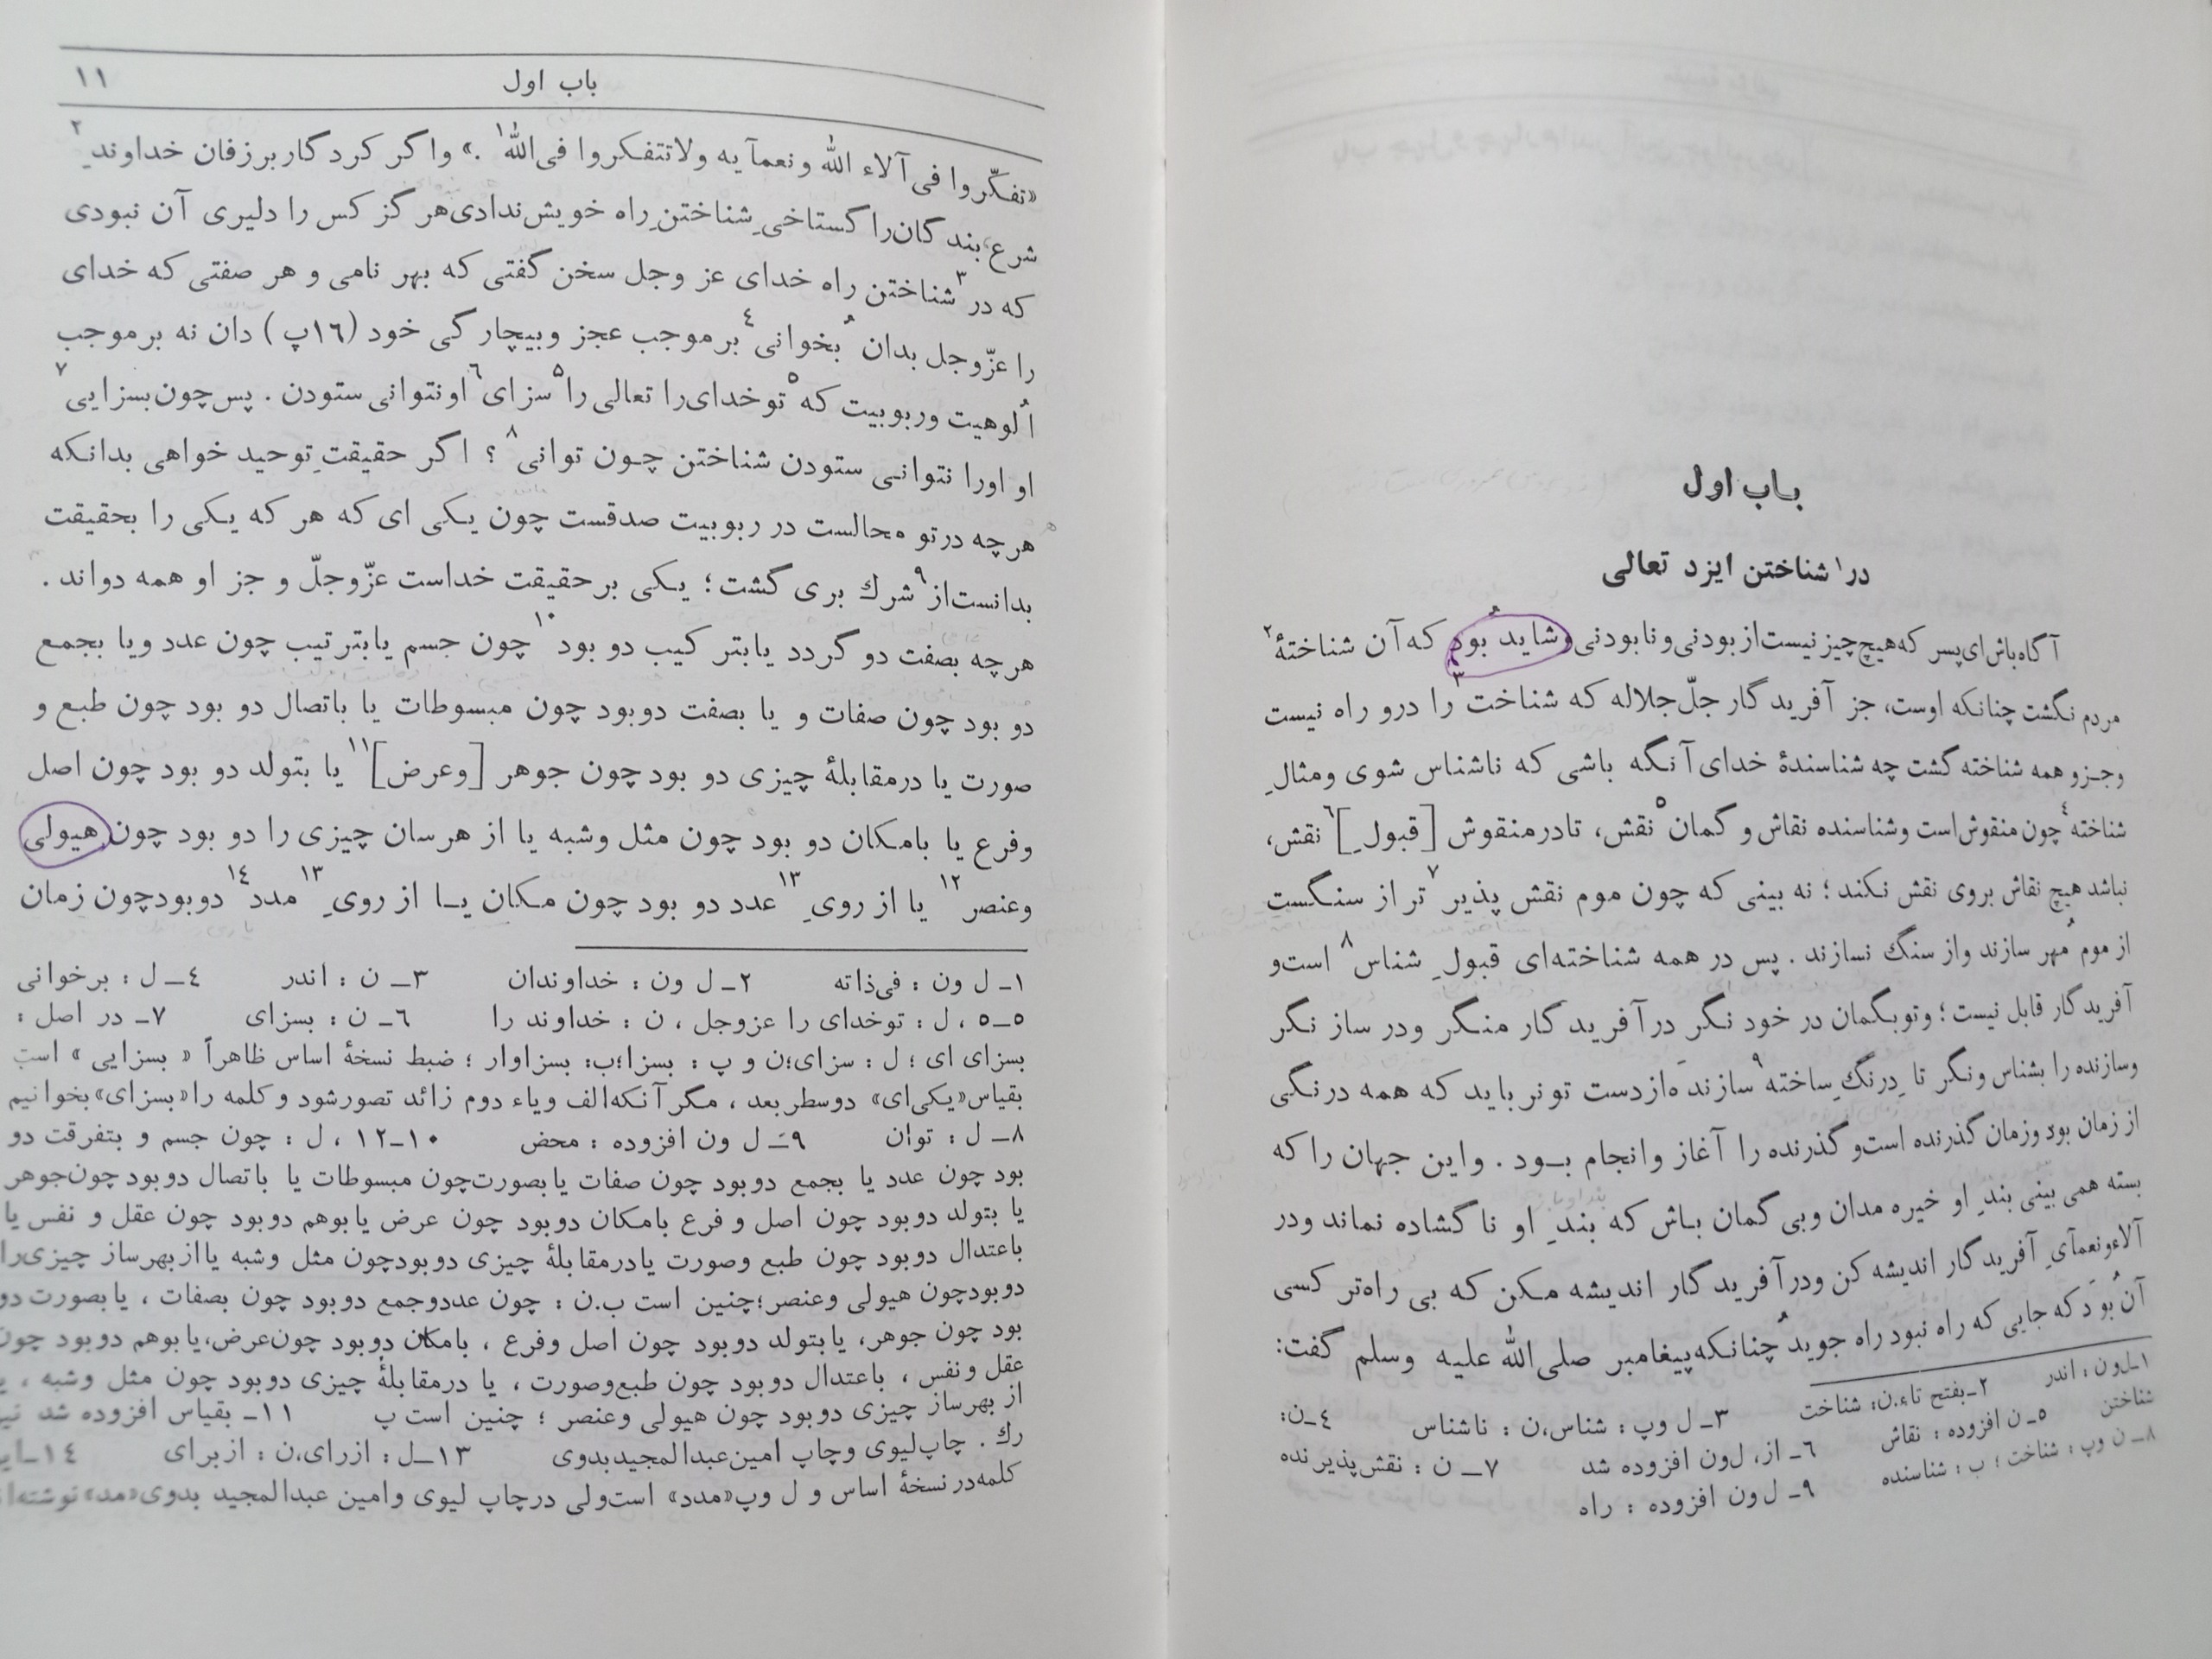 باب اول
در۱ شناختن ایزد تعالی
آگاه باش ای پسر که هیچ چیز نیست از بودنی و نابودنی و شاید بُود که آن شناختهٔ۲
مردم نگشت چنانکه اوست، جز آفریدگار جلّ جلاله که شناخت۳ را درو راه نیست
وجزو همه شناخته گشت چه شناسندهٔ خدای آنگه باشی که ناشناس شوی ومثالِ
شناخته۴ چون منقوش است وشناسنده نقاش و گمان۵ نقش، تا در منقوش [قبولِ]۶ نقش،
نباشد هیچ نقاش بروی نقش نکند؛ نه بینی که چون موم نقش پذیر۷ تر از سنگست
از موم مُهر سازند واز سنگ نسازند. پس در همه شناخته‌ای قبولِ شناس۸ است و
آفریدگار قابل نیست؛ وتوبگمان در خود نگر در آفریدگار منگر ودر ساز نگر
وسازنده را بشناس ونگر تا درنگِ ساخته۹ سازنده از دست تو نرباید که همه درنگی
از زمان بود وزمان گذرنده است و گذرنده را آغاز وانجام بود. واین جهان را که
بسته همی بینی بندِ او خیره مدان وبی گمان باش که بندِ او نا گشاده نماند ودر
آلاء ونعمآیِ آفریدگار اندیشه کن ودر آفریدگار اندیشه مکن که بی راه‌تر کسی
آن بُوَد که جایی که راه نبود راه جوید چُنانکه پیغامبر صلی الله علیه وسلم گفت:
۱ـ ل ون: اندر ۲ـ بفتح تاء. ن: شناخت ۳ـ ل وپ: شناس، ن: ناشناس ٤ـ ن:
شناختن ۵ـ ن افزوده: نقاش ٦ـ از، ل ون افزوده شد ۷ـ ن: نقش پذیرنده
۸ـ ن وپ: شناخت؛ ب: شناسنده ۹ـ ل ون افزوده: راه
باب اول ۱۱
«تفکّروا فی آلاء الله ونعمآیه ولاتتفکروا فی الله۱.» واگر کردگار بر زفان خداوندِ۲
شرع، بندگان را گستاخیِ شناختنِ راه خویش ندادی هر گز کس را دلیری آن نبودی
که در۳ شناختن راه خدای عز وجل سخن گفتی که بهر نامی و هر صفتی که خدای
را عزّوجل بدان بُخوانی٤ بر موجب عجز وبیچارگی خود (۱٦پ) دان نه بر موجب
اُلوهیت وربوبیت که۵ توخدای را تعالی را۵ سزای٦ اونتوانی ستودن. پس چون بسزایی۷
او اورا نتوانی ستودن شناختن چون توانی۸؟ اگر حقیقتِ توحید خواهی بدانکه
هرچه در تو محالست در ربوبیت صدقست چون یکی ای که هر که یکی را بحقیقت
بدانست از۹ شرك بری گشت؛ یکی بر حقیقت خداست عزّوجلّ و جز او همه دواند.
هرچه بصفت دو گردد یا بترکیب دو بود۱۰ چون جسم یا بترتیب چون عدد ویا بجمع
دو بود چون صفات و یا بصفت دوبود چون مبسوطات یا باتصال دو بود چون طبع و
صورت یا در مقابلهٔ چیزی دو بود چون جوهر [وعرض]۱۱ یا بتولد دو بود چون اصل
وفرع یا بامکان دو بود چون مثل وشبه یا از هر سان چیزی را دو بود چون هیولی
وعنصر۱۲ یا از رویِ۱۳ عدد دو بود چون مکان یا از رویِ۱۳ مدد۱٤ دو بود چون زمان
۱ـ ل ون: فی ذاته ۲ـ ل ون: خداوندان ۳ـ ن: اندر ٤ـ ل: برخوانی
۵ـ۵، ل: توخدای را عزوجل، ن: خداوند را ٦ـ ن: بسزای ۷ـ در اصل:
بسزای ای؛ ل: سزای؛ ن و پ: بسزا؛ ب: بسزاوار؛ ضبط نسخهٔ اساس ظاهراً «بسزایی» است
بقیاس «یکی‌ای» دو سطر بعد، مگر آنکه الف ویاء دوم زائد تصور شود و کلمه را «بسزای» بخوانیم
۸ـ ل: توان ۹ـ ل ون افزوده: محض ۱۰ـ۱۲، ل: چون جسم و بتفرقت دو
بود چون عدد یا بجمع دوبود چون صفات یا بصورت چون مبسوطات یا باتصال دوبود چون جوهر
یا بتولد دوبود چون اصل و فرع بامکان دوبود چون عرض یا بوهم دوبود چون عقل و نفس یا
باعتدال دوبود چون طبع وصورت یا در مقابلهٔ چیزی دوبود چون مثل وشبه یا از بهر ساز چیزی را
دوبود چون هیولی وعنصر؛ چنین است ب. ن: چون عدد وجمع دوبود چون بصفات، یا بصورت دو
بود چون جوهر، یا بتولد دوبود چون اصل وفرع، بامکان دوبود چون عرض، یا بوهم دوبود چون
عقل ونفس، باعتدال دوبود چون طبع وصورت، یا در مقابلهٔ چیزی دوبود چون مثل وشبه،
از بهر ساز چیزی دوبود چون هیولی وعنصر؛ چنین است پ ۱۱ـ بقیاس افزوده شد
رك. چاپ لیوی وچاپ امین عبدالمجید بدوی ۱۳ـ ل: از رای، ن: از برای ۱٤ـ
کلمه در نسخهٔ اساس و ل وپ «مدد» است ولی در چاپ لیوی وامین عبدالمجید بدوی «مد»